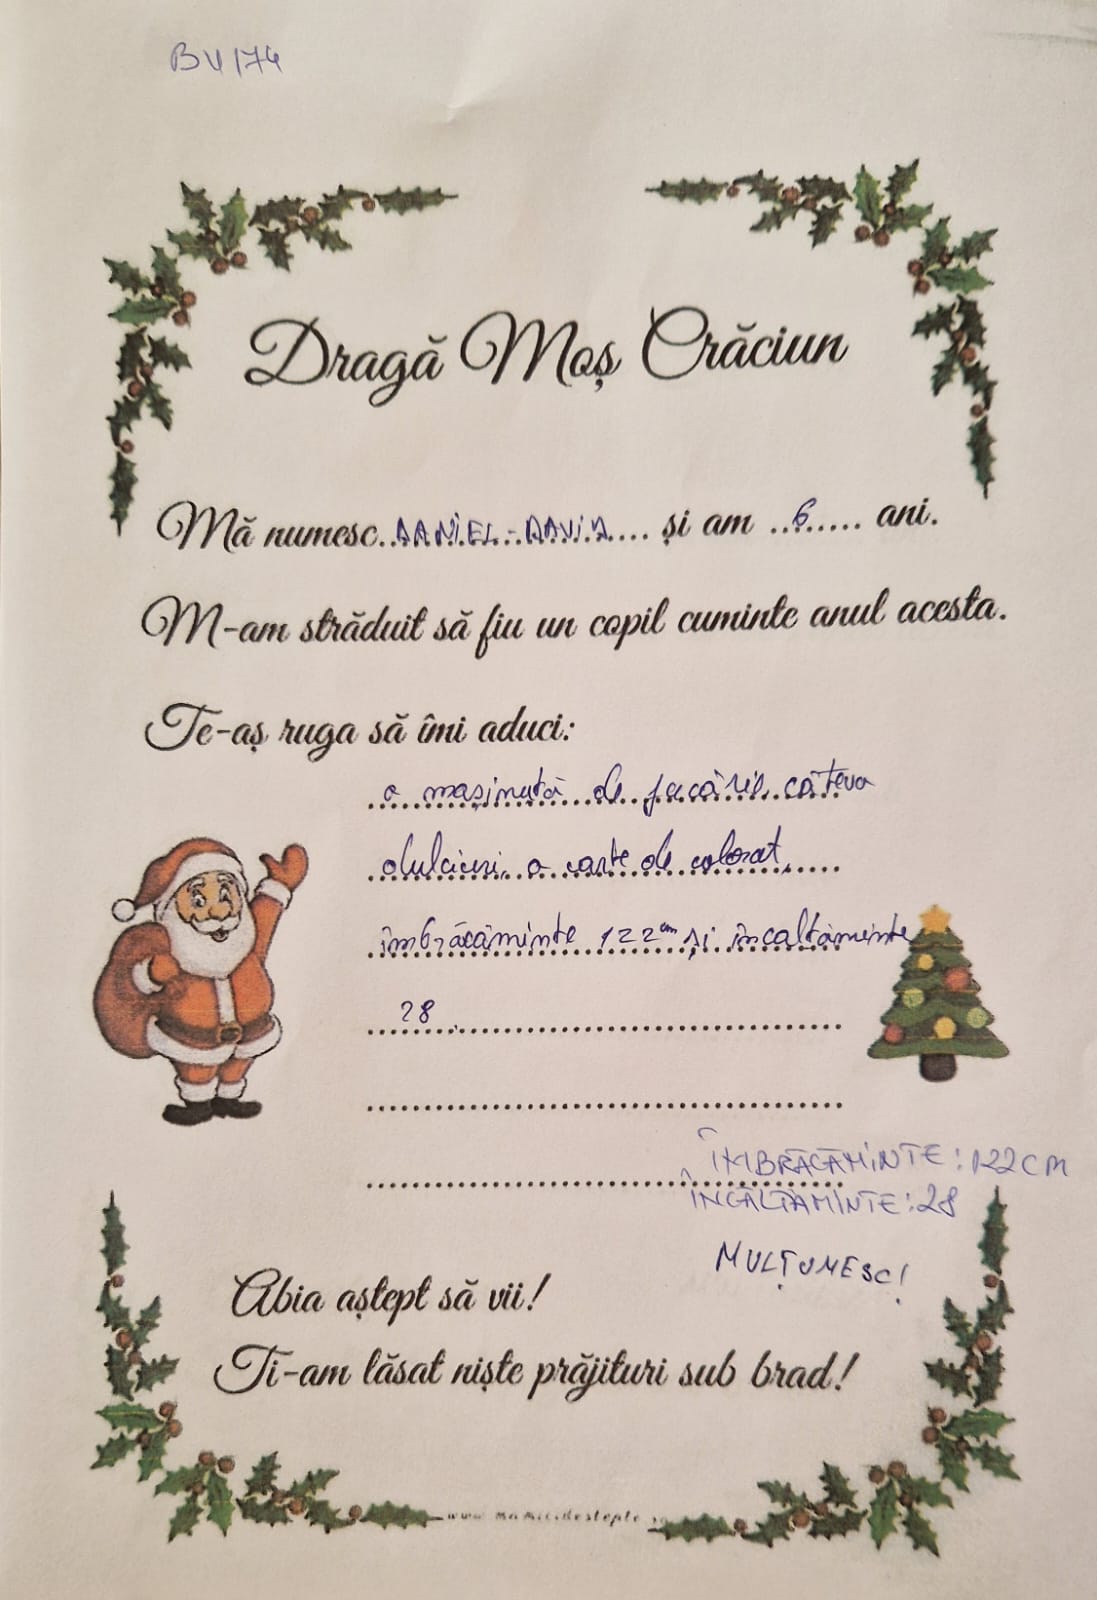 BV174
Dragă Moș Crăciun
Mă numesc..DANIEL-DAVID.... și am ..6..... ani.
M-am străduit să fiu un copil cuminte anul acesta.
Te-aș ruga să îmi aduci:
o mașinută de jucărie, câteva
dulciuri, o carte de colorat,
îmbrăcăminte 122cm și încaltăminte
28.
ÎMBRĂCĂMINTE: 122CM
ÎNCĂLȚĂMINTE: 28
MULȚUMESC!
Abia aștept să vii!
Ti-am lăsat niște prăjituri sub brad!